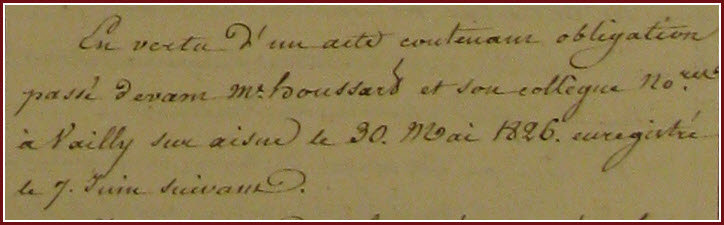 En vertu d'un acte contenant obligation
passé devant Mr. houssard et son collègue No.res
à Vailly sur aisne le 30. Mai 1826. enregistré
le 7. Juin suivant.